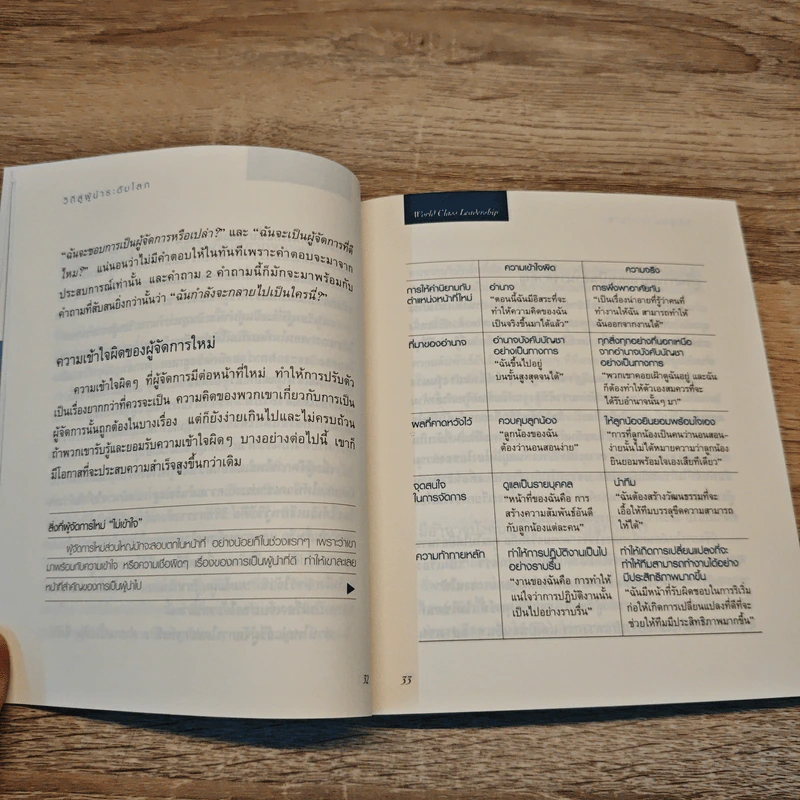 วิถีสู่ผู้นำระดับโลก
"ฉันจะชอบการเป็นผู้จัดการหรือเปล่า?" และ "ฉันจะเป็นผู้จัดการที่ดี
ไหม?" แน่นอนว่าไม่มีคำตอบให้ในทันทีเพราะคำตอบจะมาจาก
ประสบการณ์เท่านั้น และคำถาม 2 คำถามนี้ก็มักจะมาพร้อมกับ
คำถามที่สับสนยิ่งกว่านั้นว่า "ฉันกำลังจะกลายไปเป็นใครนี่?"
ความเข้าใจผิดของผู้จัดการใหม่
ความเข้าใจผิดๆ ที่ผู้จัดการมีต่อหน้าที่ใหม่ ทำให้การปรับตัว
เป็นเรื่องยากกว่าที่ควรจะเป็น ความคิดของพวกเขาเกี่ยวกับการเป็น
ผู้จัดการนั้นถูกต้องในบางเรื่อง แต่ก็ยังง่ายเกินไปและไม่ครบถ้วน
ถ้าพวกเขารับรู้และยอมรับความเข้าใจผิดๆ บางอย่างต่อไปนี้ เขาก็
มีโอกาสที่จะประสบความสำเร็จสูงขึ้นกว่าเดิม
สิ่งที่ผู้จัดการใหม่ "ไม่เข้าใจ"
ผู้จัดการใหม่ส่วนใหญ่มักจะสอบตกในหน้าที่ อย่างน้อยก็ในช่วงแรกๆ เพราะว่าเขา
มาพร้อมกับความเข้าใจ หรือความเชื่อผิดๆ เรื่องของการเป็นผู้นำที่ดี ทำให้เขาละเลย
หน้าที่สำคัญของการเป็นผู้นำไป
32
World Class Leadership
ความเข้าใจผิด
ความจริง
การให้คำนิยามกับ
ตำแหน่งหน้าที่ใหม่
อำนาจ
"ตอนนี้ฉันมีอิสระที่จะ
ทำให้ความคิดของฉัน
เป็นจริงขึ้นมาได้แล้ว"
การพึ่งพาอาศัยกัน
"เป็นเรื่องน่าอายที่รู้ว่าคนที่
ทำงานให้ฉัน สามารถทำให้
ฉันออกจากงานได้"
ที่มาของอำนาจ
อำนาจบังคับบัญชา
อย่างเป็นทางการ
"ฉันขึ้นไปอยู่
บนขั้นสูงสุดจนได้"
ทุกสิ่งทุกอย่างที่นอกเหนือ
จากอำนาจบังคับบัญชา
อย่างเป็นทางการ
"พวกเขาคอยเฝ้าดูฉันอยู่ และฉัน
ก็ต้องทำให้ตัวเองสมควรที่จะ
ได้รับอำนาจนั้นๆ มา"
ผลที่คาดหวังไว้
ควบคุมลูกน้อง
"ลูกน้องของฉัน
ต้องว่านอนสอนง่าย"
ให้ลูกน้องยินยอมพร้อมใจเอง
"การที่ลูกน้องเป็นคนว่านอนสอน-
ง่ายนั้นไม่ได้หมายความว่าลูกน้อง
ยินยอมพร้อมใจเองเสียทีเดียว"
จุดสนใจ
ในการจัดการ
ดูแลเป็นรายบุคคล
"หน้าที่ของฉันคือ การ
สร้างความสัมพันธ์อันดี
กับลูกน้องแต่ละคน"
นำทีม
"ฉันต้องสร้างวัฒนธรรมที่จะ
เอื้อให้ทีมบรรลุขีดความสามารถ
ให้ได้"
ความท้าทายหลัก
ทำให้การปฏิบัติงานเป็นไป
อย่างราบรื่น
"งานของฉันคือ การทำให้
แน่ใจว่าการปฏิบัติงานนั้น
เป็นไปอย่างราบรื่น"
ทำให้เกิดการเปลี่ยนแปลงที่จะ
ทำให้ทีมสามารถทำงานได้อย่าง
มีประสิทธิภาพมากขึ้น
"ฉันมีหน้าที่รับผิดชอบในการริเริ่ม
ก่อให้เกิดการเปลี่ยนแปลงที่ดีที่จะ
ช่วยให้ทีมมีประสิทธิภาพมากขึ้น"
33